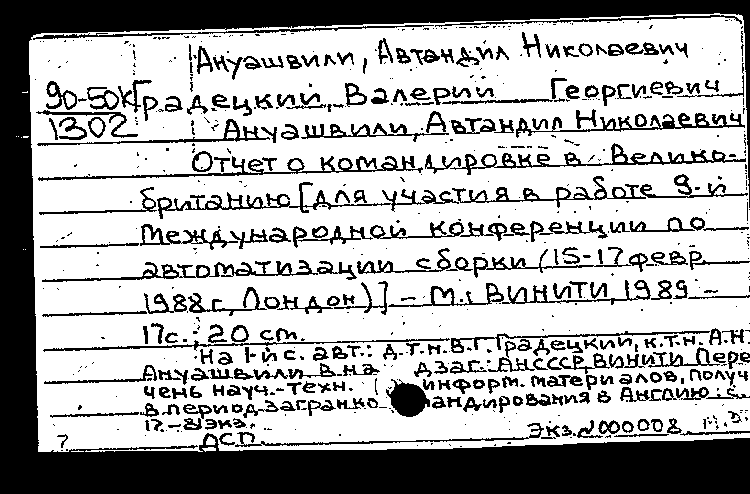 Ануашвили, Автандил Николаевич
90-50к Градецкий, Валерий Георгиевич
1302 Ануашвили, Автандил Николаевич
Отчет о командировке в Велико-
британию [для участия в работе 9-й
международной конференции по
автоматизации сборки (15-17 февр.
1988 г., Лондон)] - М.: ВИНИТИ, 1989 -
17с.; 20 см.
На 1-й с. авт.: д.т.н. В.Г. Градецкий, к.т.н. А.Н.
Ануашвили. В на дзаг.: АН СССР, ВИНИТИ Пере
чень науч.-техн. информ. материалов, получ
в период загранко андирования в Англию: с.
17. - 8 экз.
7 ДСП Экз. N 000008